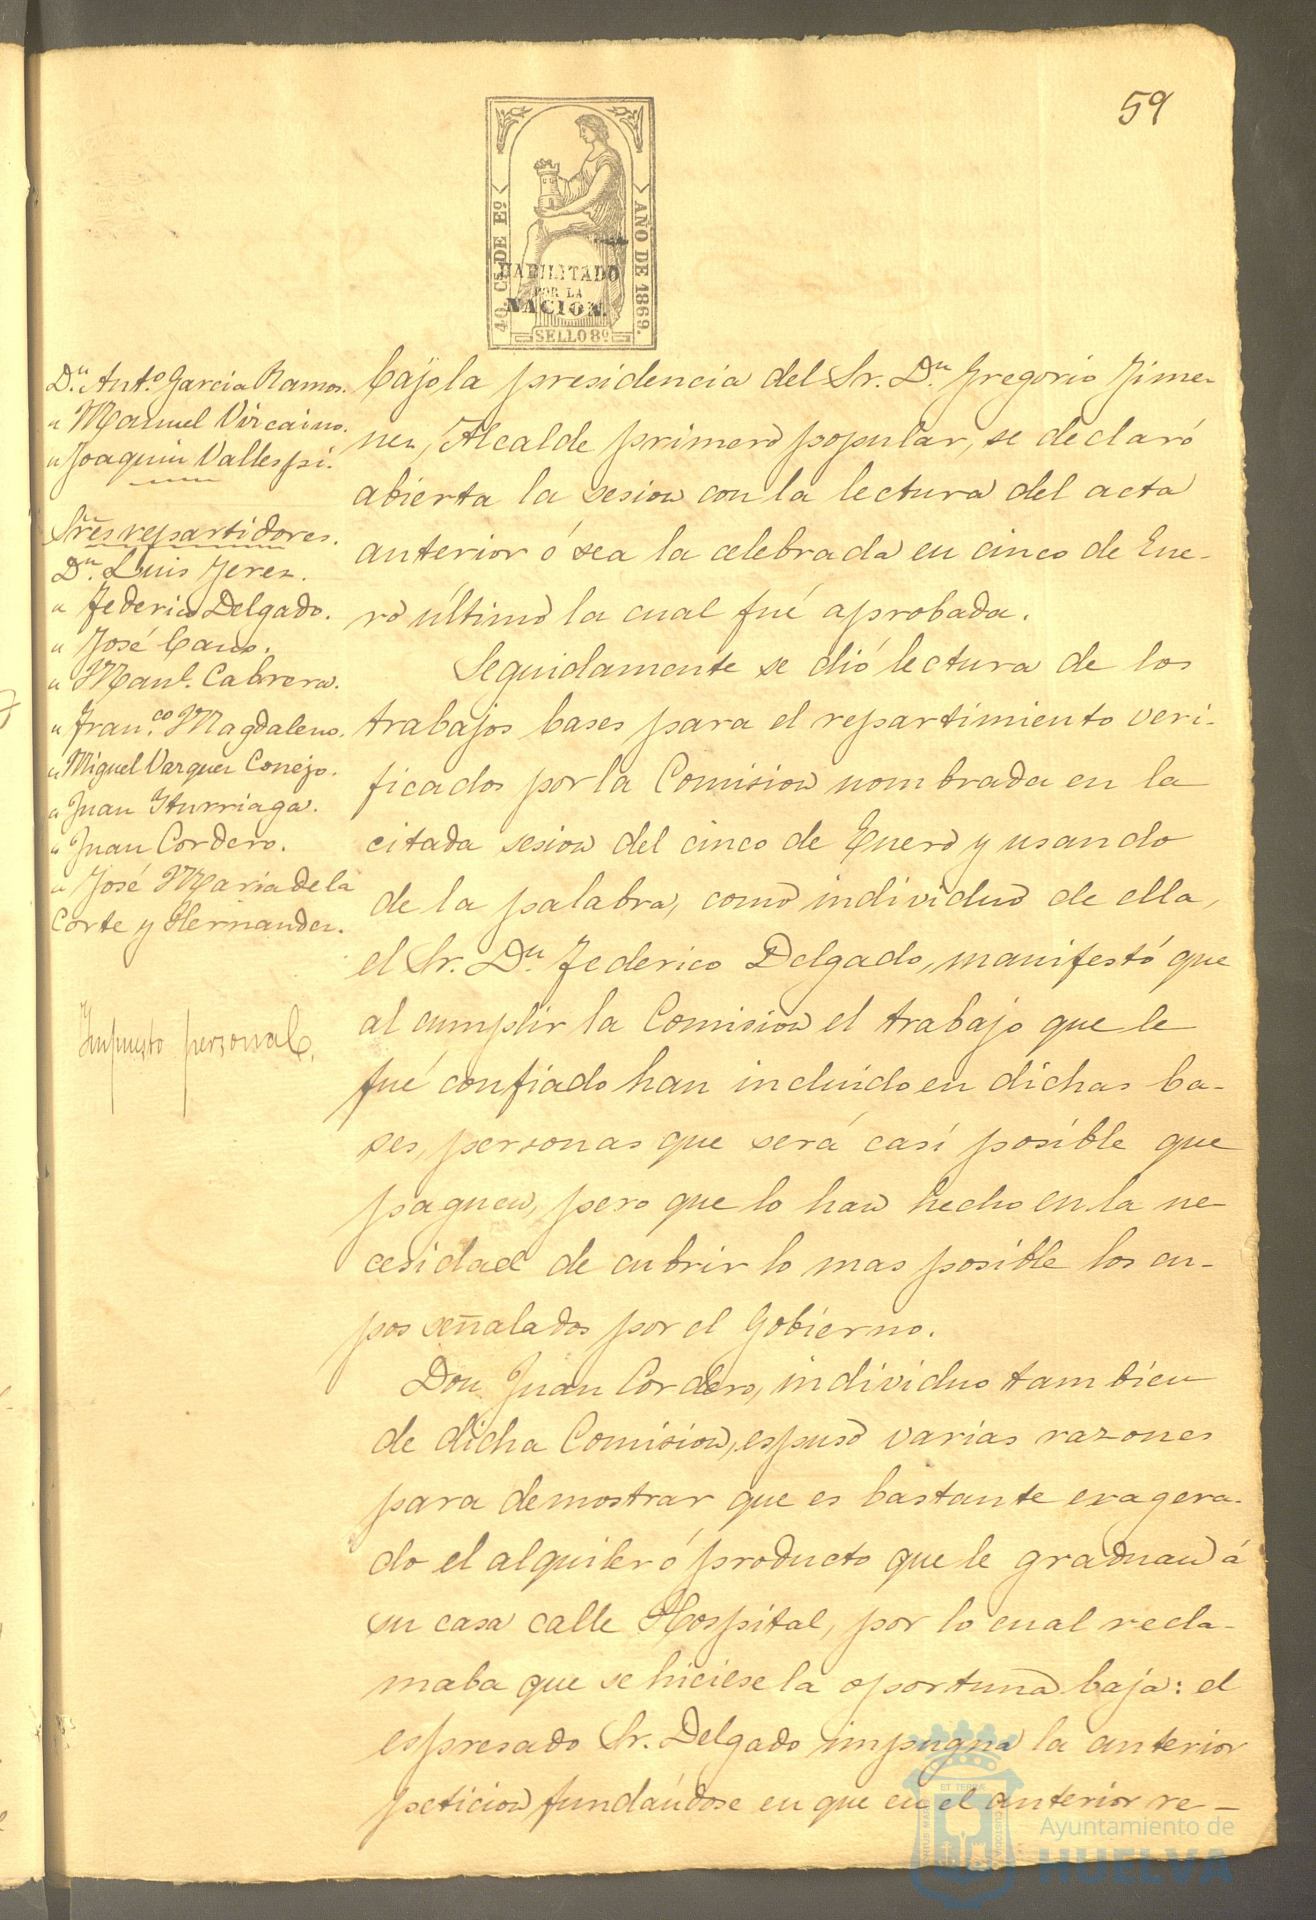 59
40 Cs. DE Eº
AÑO DE 1869.
HABILITADO
POR LA
NACION.
SELLO 8º
D.n Ant.o Garcia Ramos.
" Manuel Vizcaino.
" Joaquin Vallespi.
Sres repartidores.
D.n Luis Jerez.
" Federico Delgado.
" José Cano.
" Manl. Cabrera.
" Fran.co Magdaleno.
" Miguel Vazquez Conejo.
" Juan Yturriaga.
" Juan Cordero.
" José Maria de la
Corte y Hernandez.
Impuesto personal.
bajo la presidencia del Sr. D.n Gregorio Jime-
nez, Alcalde primero popular, se declaró
abierta la sesion con la lectura del acta
anterior ó sea la celebrada en cinco de Ene-
ro último la cual fué aprobada.
Seguidamente se dió lectura de los
trabajos bases para el repartimiento veri-
ficados por la Comision nombrada en la
citada sesion del cinco de Enero y usando
de la palabra, como individuo de ella,
el Sr. D.n Federico Delgado, manifestó que
al cumplir la Comision el trabajo que le
fué confiado han incluido en dichas ba-
ses, personas que será casi posible que
paguen, pero que lo han hecho en la ne-
cesidad de cubrir lo mas posible los cu-
pos señalados por el Gobierno.
Don Juan Cordero, individuo tambien
de dicha Comision, espuso varias razones
para demostrar que es bastante exagera-
do el alquiler ó producto que le graduan á
su casa calle Hospital, por lo cual recla-
maba que se hiciese la oportuna baja: el
espresado Sr. Delgado impugna la anterior
peticion fundándose en que en el anterior re-
Ayuntamiento de
HUELVA